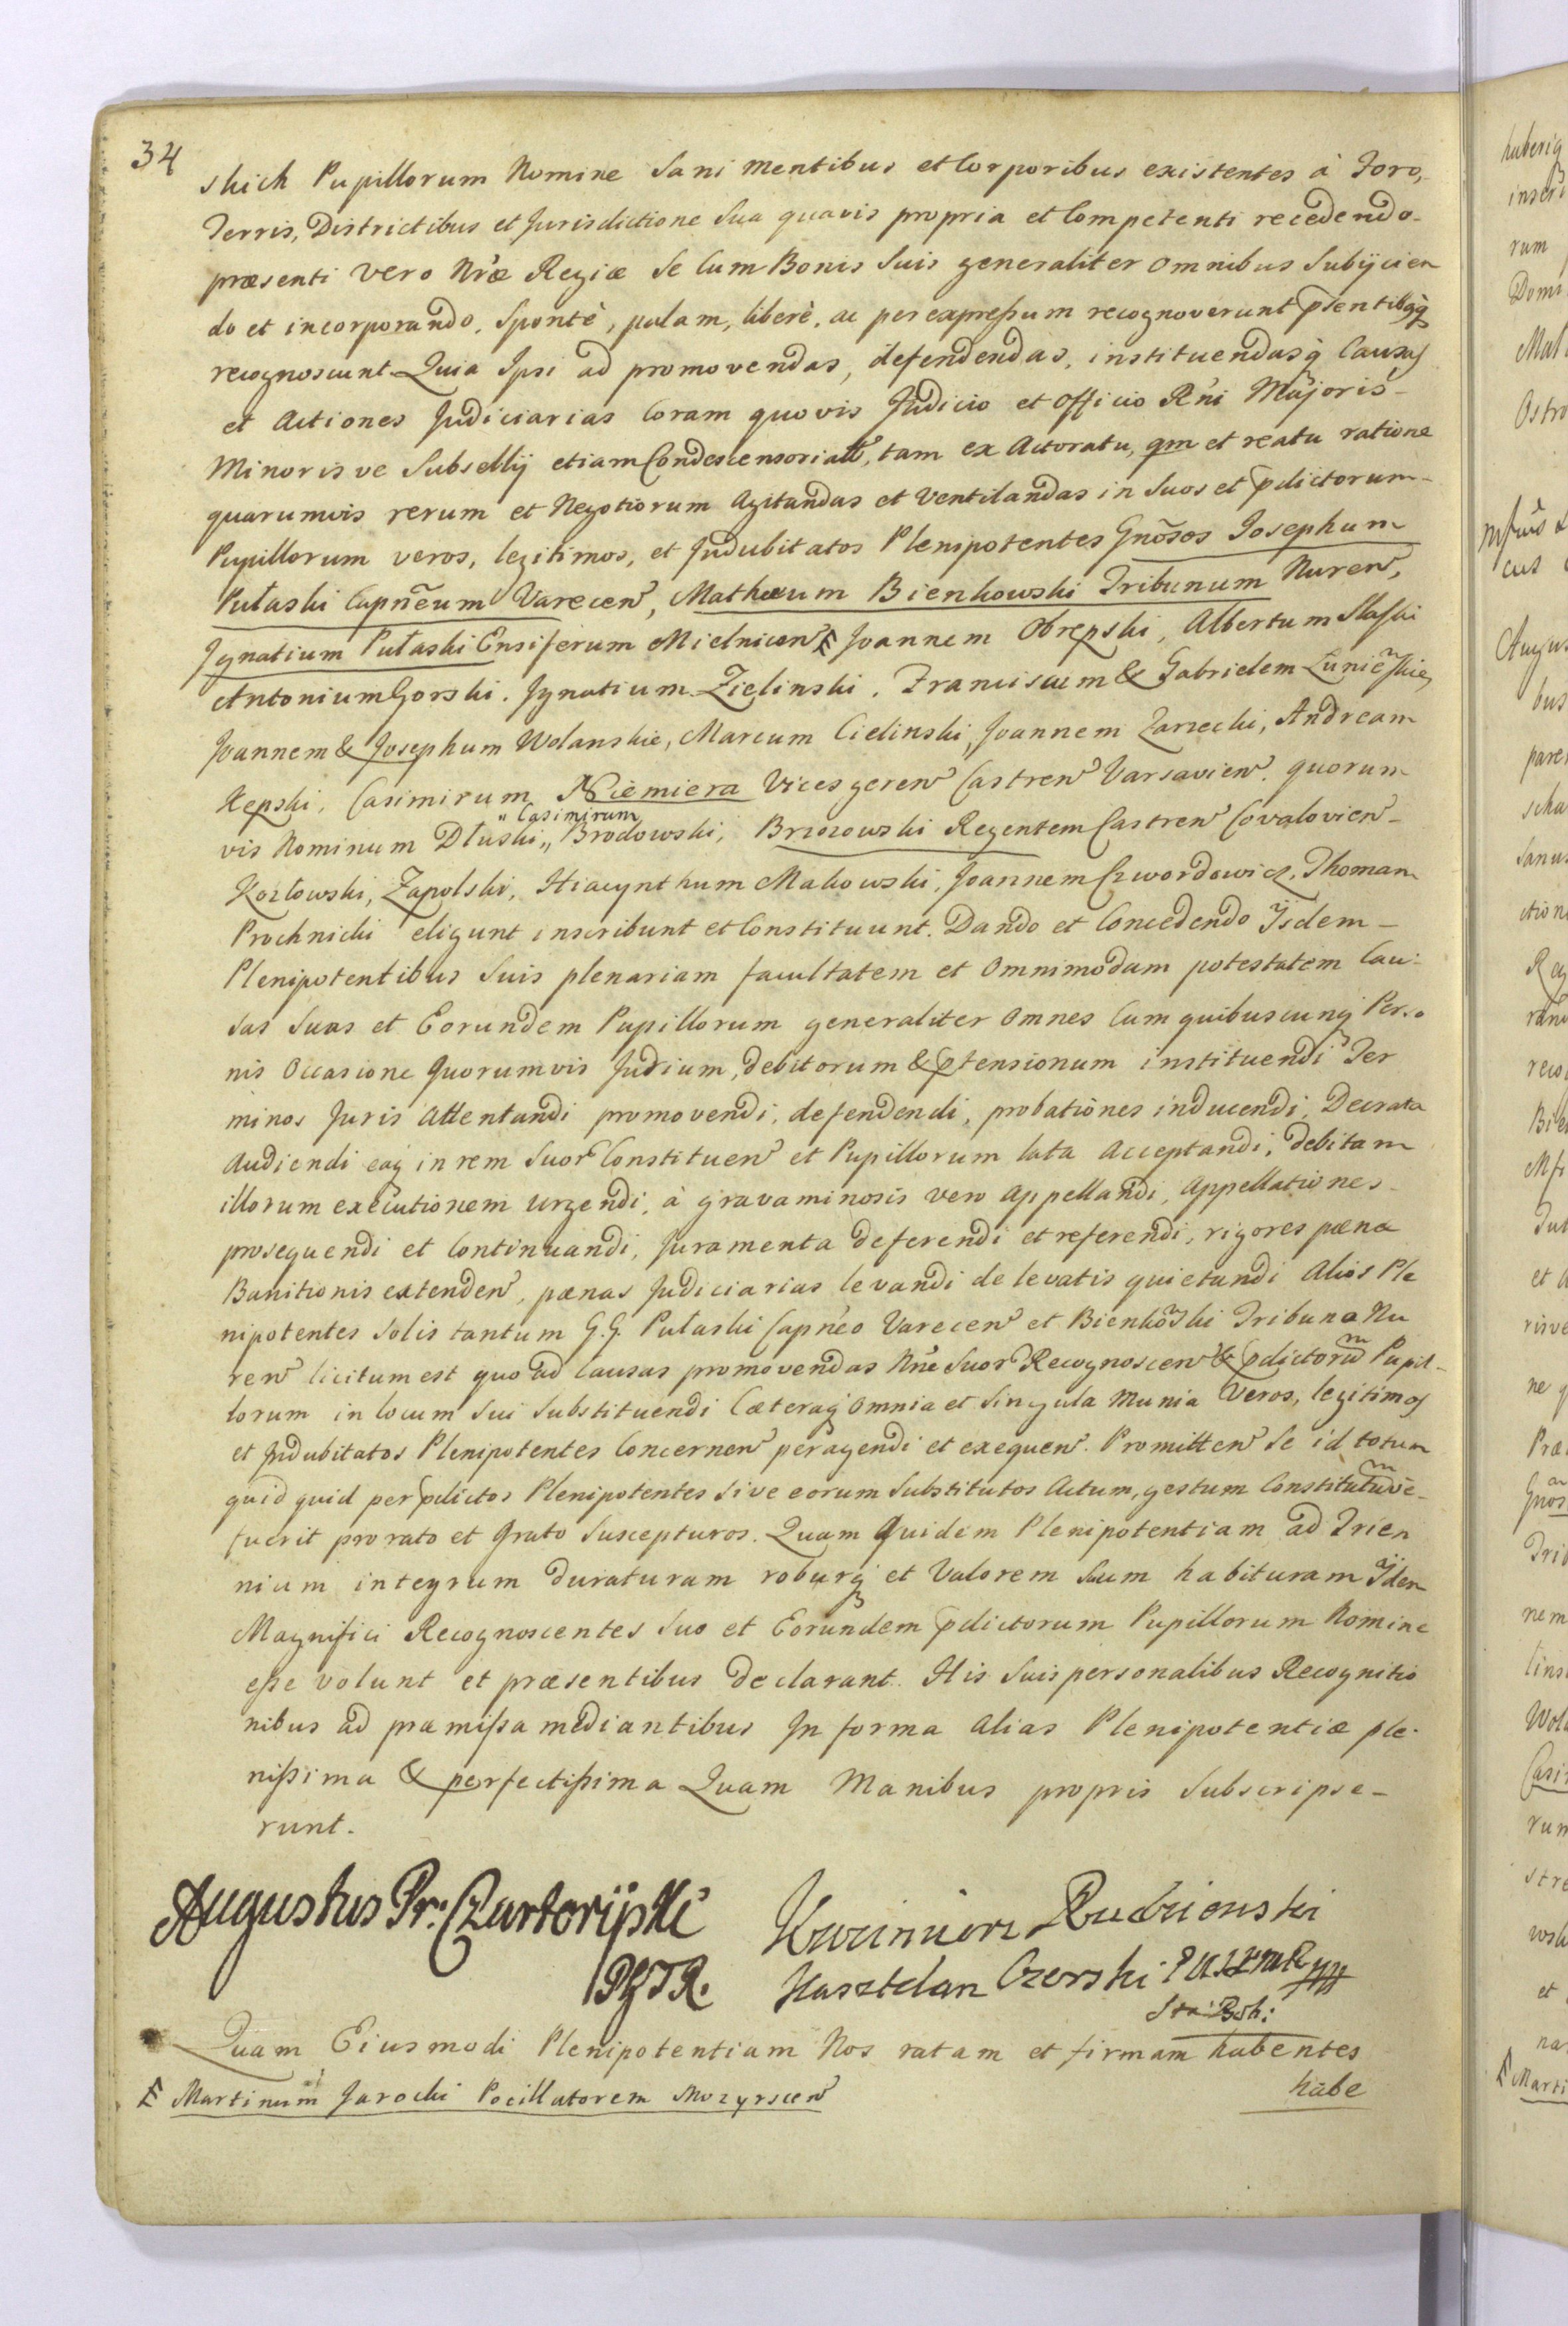 34
skich Pupillorum Nomine Sani mentibus et Corporibus existentes à Foro,
Terris, Districtibus et Jurisdictione Sua quavis propria et Competenti recedendo
præsenti vero Nr̃æ Regiæ Se Cum Bonis Suis generaliter omnibus Subijcien
do et incorporando, Spontè, palam, liberè, ac per expreßum recognoverunt p̃sentibq̃
recognoscunt Quia Ipsi ad promovendas, defendendas, instituendasq̃ Causas
et Actiones Judiciarias Coram quovis Judicio et Officio R̃ni Majoris
Minoris ve Subsellij etiam Condescensoriali, tam ex Actoratu, qm et reatu ratione
quarumvis rerum et Negotiorum Agitandas et Ventilandas in Suos et p̃dictorum
Pupillorum veros, legitimos, et Indubitatos Plenipotentes Gnõsos Josephum
Pułaski Capnẽum Varecen, Mathæum Bienkowski Tribunum Nuren,
Ignatium Pułaski Ensiferum Mielnicen Ƒ Joannem Obrępski, Albertum Slaski
Antonium Gorski, Ignatium Zielinski, Franciscum & Gabrielem Łuniẽskie,
Joannem & Josephum Wolanskie, Marcum Cielinski, Joannem Zarzecki, Andream
Kępski, Casimirum Niemiera Vicesgeren Castren Varsavien. quorum
vis Nominum Dłuski „ Brodowski, Brzozowski Regentem Castren Covalovien
„ Casimirum
Kozłowski, Zapolski, Hiacynthum Makowski, Joannem Czwordowicz, Thomam
Prochnicki eligunt inscribunt et Constituunt. Dando et Concedendo Ijsdem
Plenipotentibus Suis plenariam facultatem et omnimodam potestatem Cau:
sas Suas et Eorundem Pupillorum generaliter omnes Cum quibuscunq̃ Perso
nis Occasione Quorumvis Judium, debitorum & p̃tensionum instituendi Ter
minos Juris Attentandi promovendi, defendendi, probationes inducendi, Decrata
Audiendi eaq̃ in rem Suor Constituen et Pupillorum lata Acceptandi, debitam
illorum executionem urgendi, à gravaminosis vero Appellandi, Appellationes
prosequendi et Continuandi, Juramenta deferendi et referendi, rigores pænæ
Banitionis extenden, pænas Judiciarias levandi de levatis quietandi Alios Ple
nipotentes Solis tantum G.G. Pułaski Capnẽo Varecen et Bienkõski Tribuno Nu
ren licitum est quo ad Causas promovendas Nñe Suor Recognoscen & p̃dictorũ Pupil
lorum in locum Sui Substituendi Cæteraq̃ omnia et Singula Munia Veros, legitimos
et Indubitatos Plenipotentes Concernen peragendi et exequen. Promitten Se id totum
quid quid per p̃dictos Plenipotentes Sive eorum Substitutos Actum, gestum Constitutũve
fuerit pro rato et Grato Suscepturos. Quam Quidem Plenipotentiam ad Trien
nium integrum duraturam roburq̃ et Valorem Suum habituram Ijdem
Magnifici Recognoscentes Suo et Eorundem p̃dictorum Pupillorum Nomine
eße volunt et præsentibus declarant. His Suis personalibus Recognitio
nibus ad præmißa mediantibus In forma Alias Plenipotentiæ ple
nißima & perfectißima Quam Manibus propris Subscripse-
runt.
Augustus Pr: Czartoryski
Kazimierz Rudzienski
Kasztelan Czerski
Quam Eiusmodi Plenipotentiam Nos ratam et firmam habentes
habe
Ƒ Martinum Jarocki Pocillatorem Mozyrscen